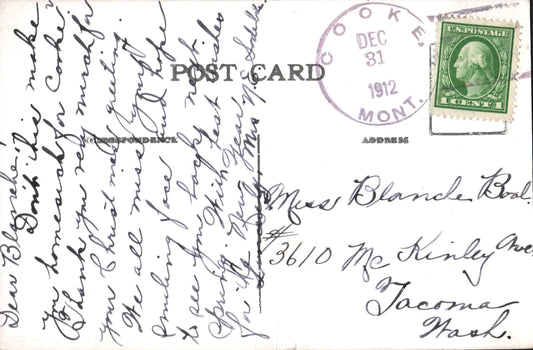 POST CARD
COOKE.
DEC
31
1912
MONT.
U.S. POSTAGE
1 CENT 1
CORRESPONDENCE
ADDRESS
Dear Blanche:
Don't this make
you homesick for Cooke?
Thank you very much for
your Christmas greeting
We all miss your
smiling face and hope
to see you back next
spring. With best wishes
for the New Year
Mrs
Miss Blanche Boal.
#3610 McKinley Ave.
Tacoma
Wash.